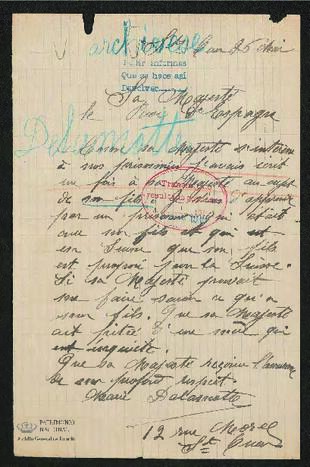 archivese
St Ouen 25 Mai
Pedir informes
Que se hace así
Devolver
Sa Majesté
le Roi d'Espagne
Delamotte
Comme sa Majesté s'intéresse
à nos prisonniers j'avais écrit
un fois à sa Majesté au sujet
de mon fils
par un prisonnier qui était
avec mon fils et qui est
en Suisse que mon fils
est proposé pour la Suisse.
Si sa Majesté pouvait
me faire savoir ce qu'a
mon fils. Que sa Majesté
ait pitié d'une mère qui
est inquiète.
Que sa Majesté reçoive l'assurance
de mon profond respect.
Marie Delamotte
12 rue Morel
St Ouen
PATRIMONIO
NACIONAL
Archivo General de Palacio